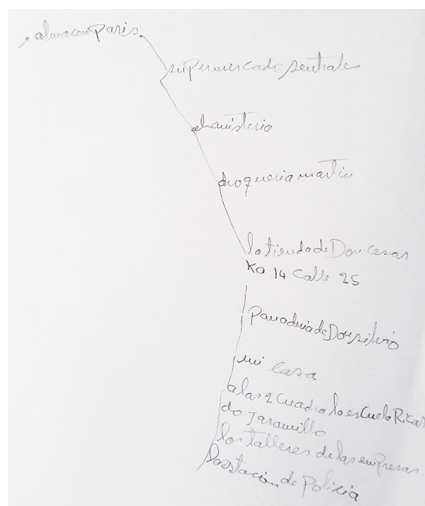 almacen Paris.
supermercado sentrales
ebanisteria
droqueria martin
la tienda de Don cesar
Ka 14 calle 25
panaderia de Don silvio
mi casa
a las 2 cuadra la escuela Ricar
do Jaramillo
los talleres de las empresas
la estacion de Polisia